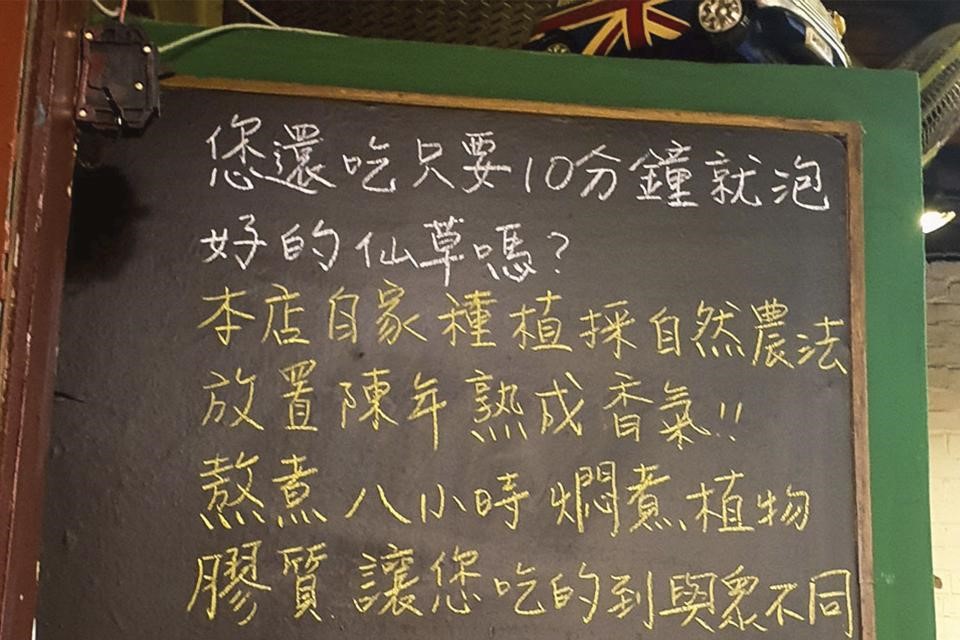 您還吃只要10分鐘就泡
好的仙草嗎?
本店自家種植採自然農法
放置陳年熟成香氣!!
熬煮八小時燜煮植物
膠質 讓您吃的到與眾不同